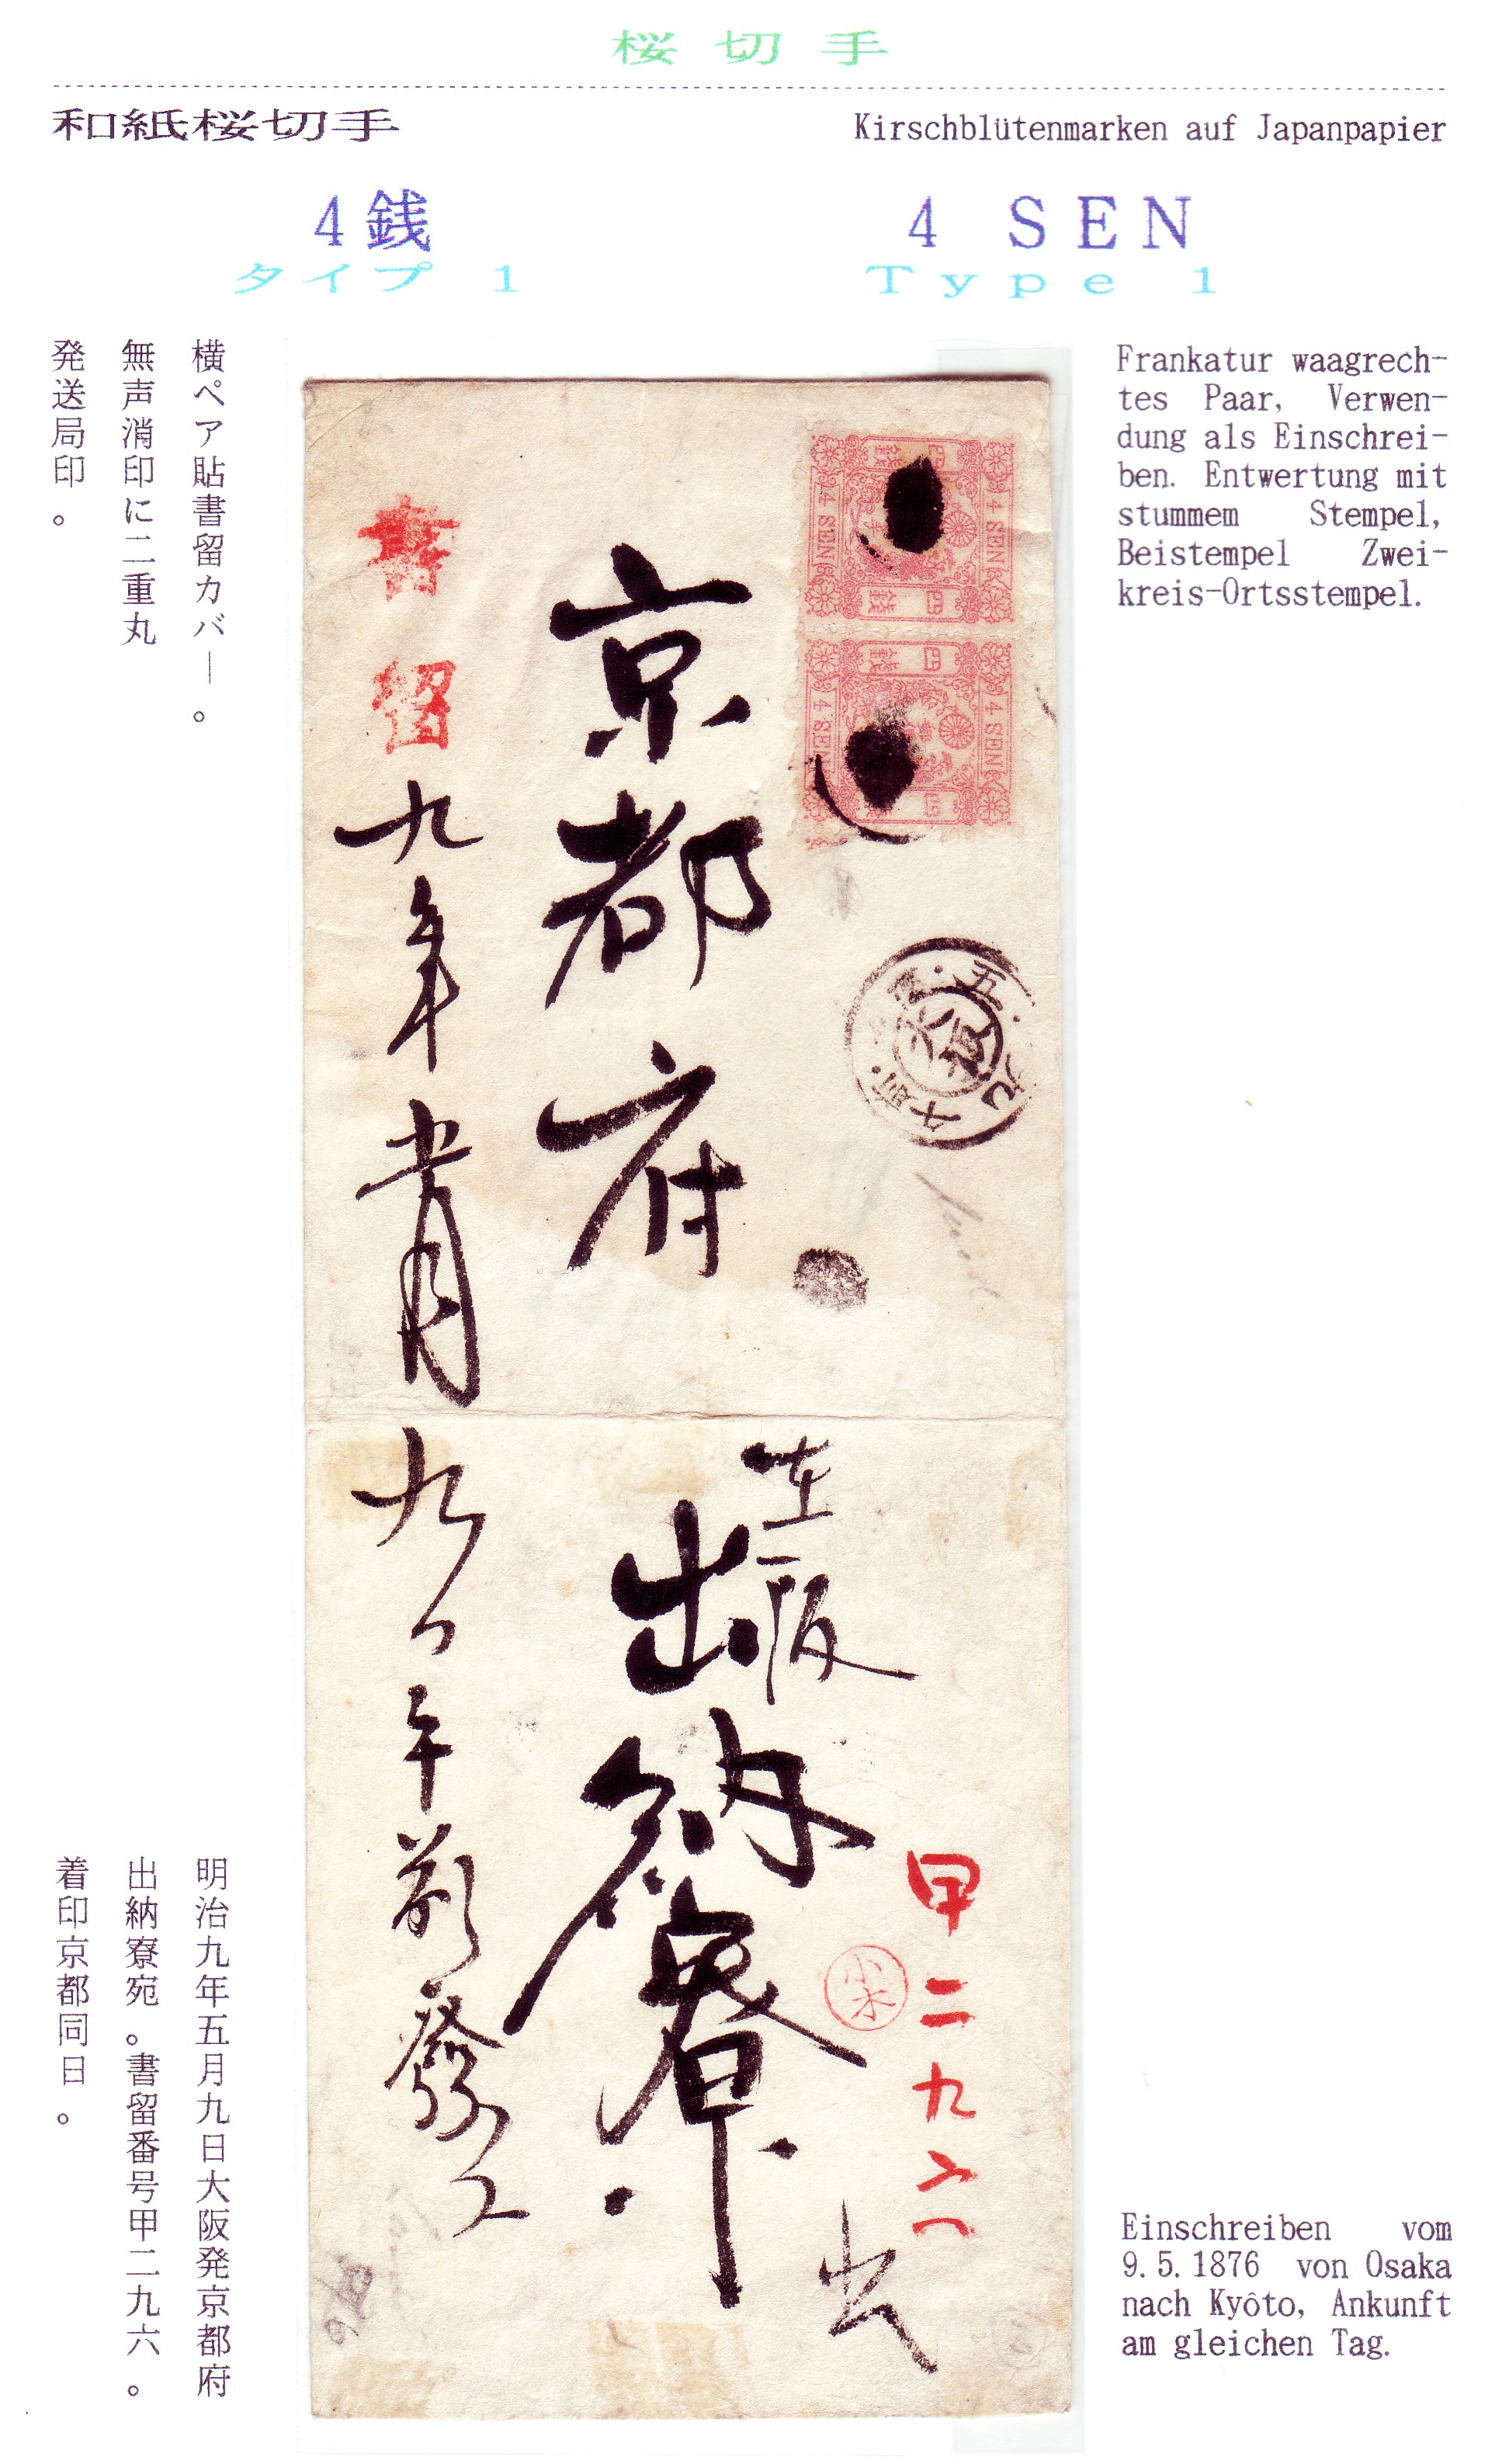 桜切手
和紙桜切手
Kirschblütenmarken auf Japanpapier
4銭
4 SEN
タイプ 1
Type 1
横ペア貼書留カバー。
無声消印に二重丸
発送局印。
Frankatur waagrech-
tes Paar, Verwen-
dung als Einschrei-
ben. Entwertung mit
stummem Stempel,
Beistempel Zwei-
kreis-Ortsstempel.
4 SEN
4 SEN
4 SEN
4 SEN
大阪
五・九
午前
甲二九六
在阪
京都府
出納寮
出
書留
九年五月九日午前發
明治九年五月九日大阪発京都府
出納寮宛。書留番号甲二九六。
着印京都同日。
Einschreiben vom
9.5.1876 von Osaka
nach Kyôto, Ankunft
am gleichen Tag.